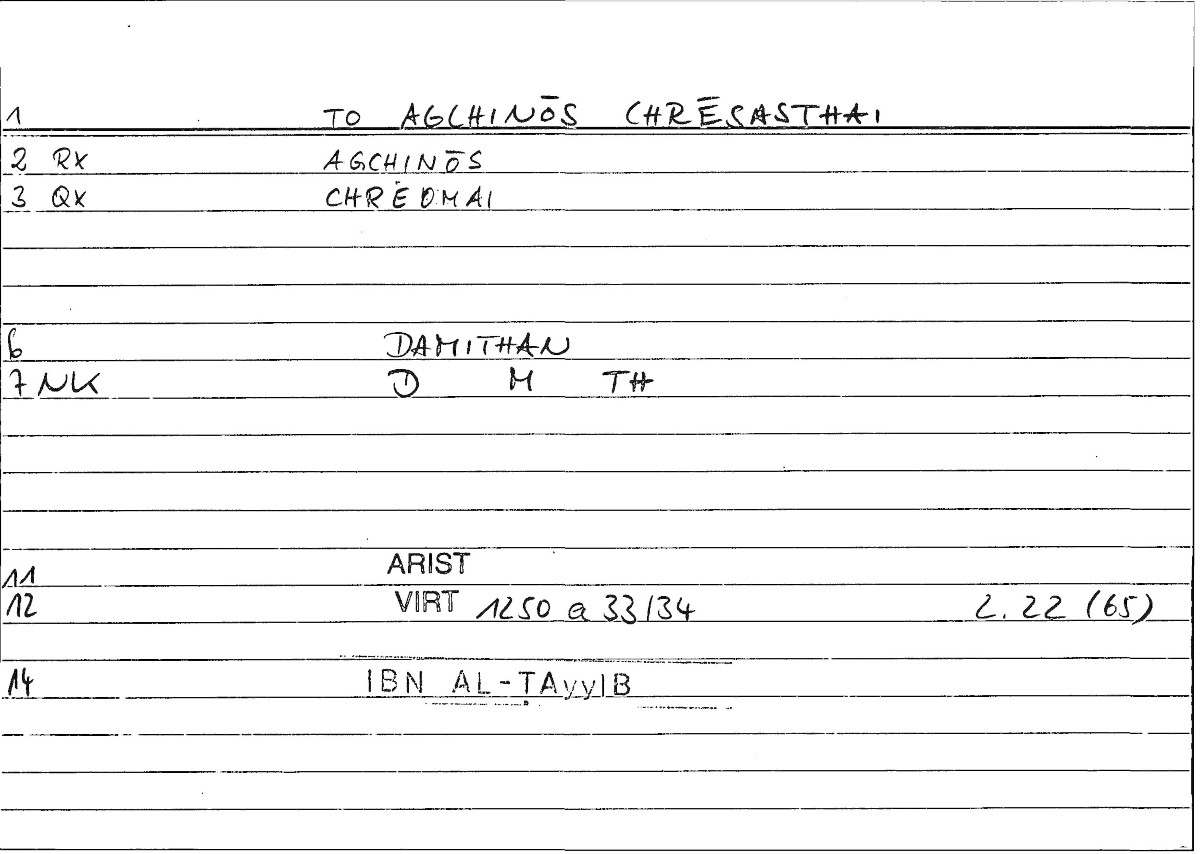 1 TO AGCHINŌS CHRĒSASTHAI
2 RX AGCHINŌS
3 QX CHRĒOMAI
6 DAMITHAN
7 NK D M TH
11 ARIST
12 VIRT 1250 a 33/34 2.22 (65)
14 IBN AL-TAyyIB